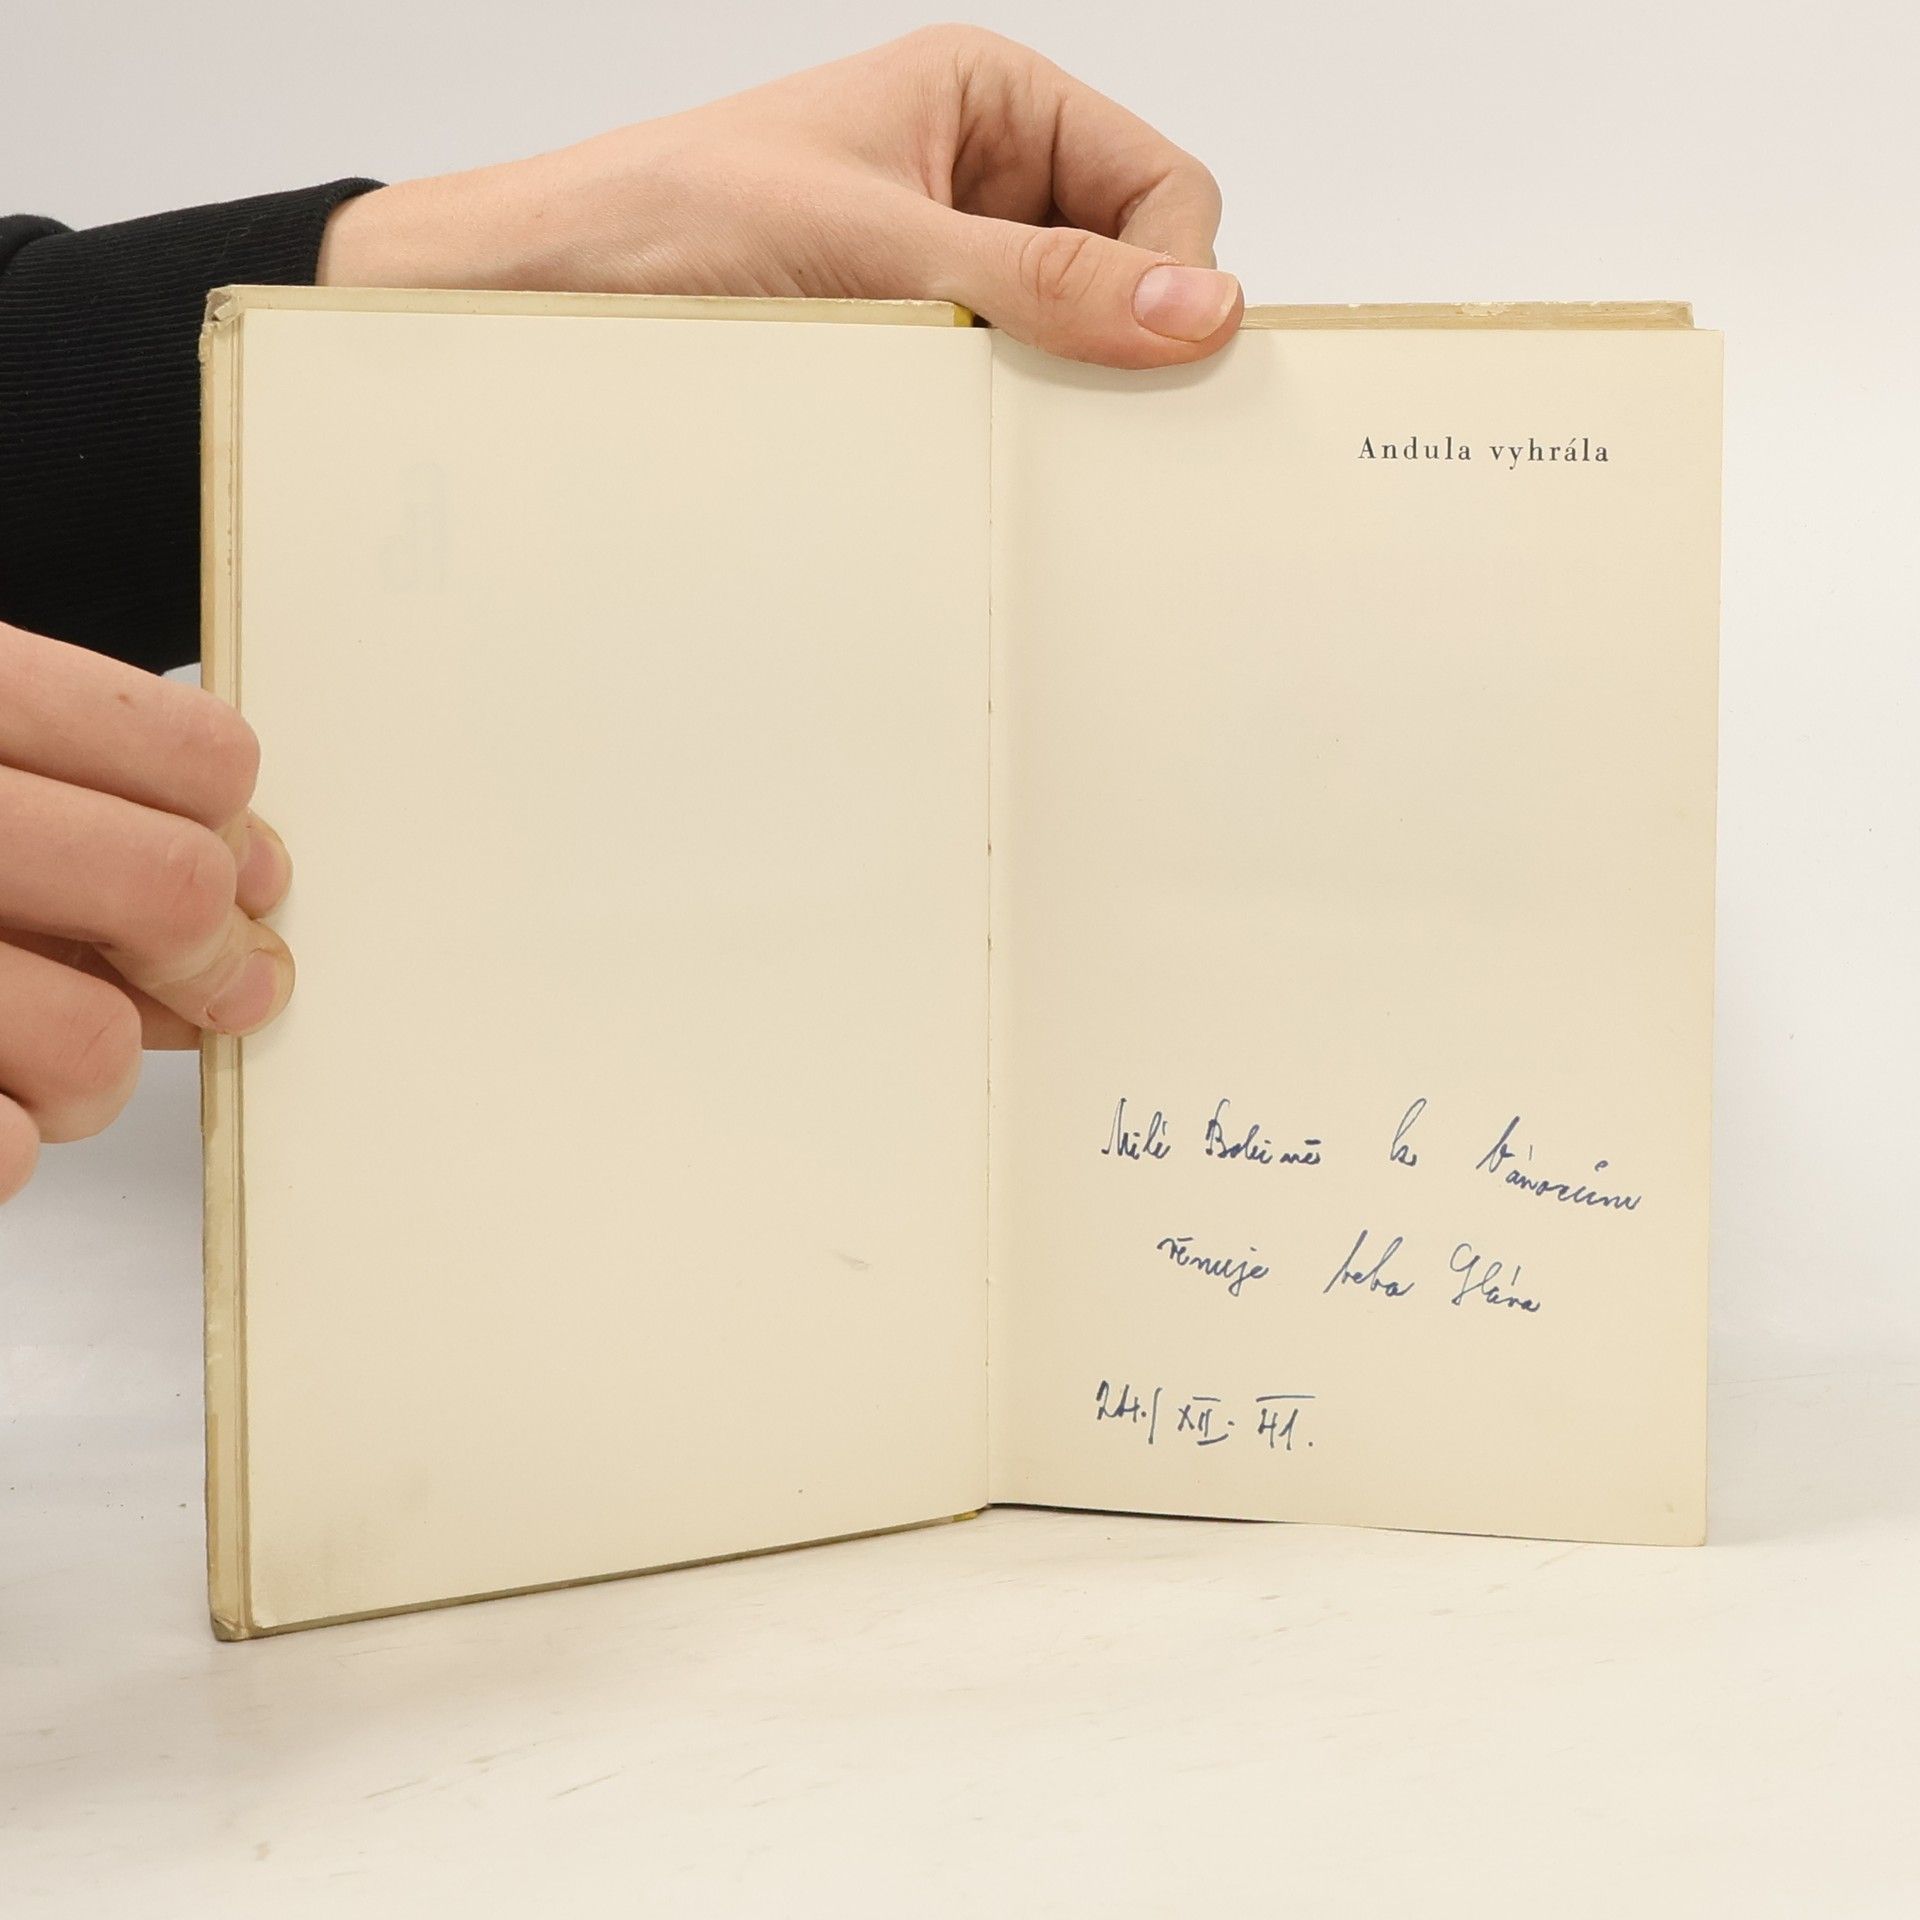 Andula vyhrála
Milé Boženě k vánocům
věnuje teta Sláva
24./XII. 41.